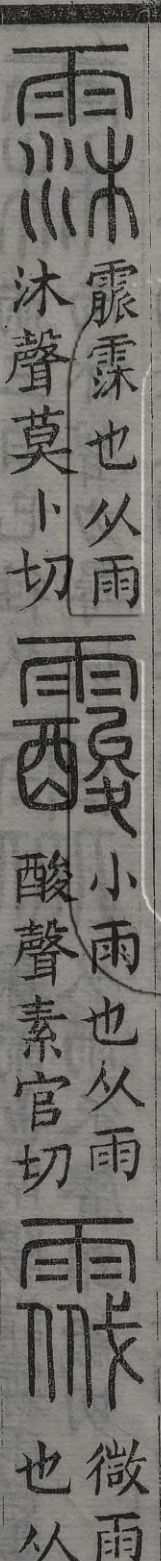 霂
霢霂也从雨
沐聲莫卜切
䨘
小雨也从雨
酸聲素官切
䨷
微雨
也从